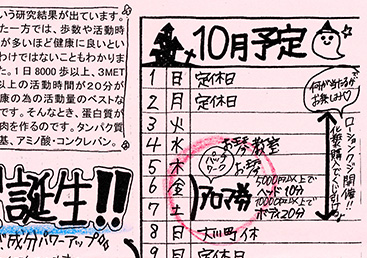 いう研究結果が出ています。
た一方では、歩数や活動時
が多いほど健康に良いとい
わけではないこともわかりま
た。1日8000歩以上、3MET
以上の活動時間が20分が
康の為の活動量のベストな
です。そんなとき、蛋白質が
肉を作るのです。タンパク質
基、アミノ酸・コンクレバン。
誕生!!
成分パワーアップ
10月予定
1 日 定休日
2 月 定休日
3 火
4 水 お琴教室
5 木 パッチワーク お琴
6 金 アロマ券 5000円以上でハンド10分
7 土 10000円以上でボディ20分
8 日 大川町休
9 月 定休日
何が当たるかお楽しみ♡
ローションクジ開催!!